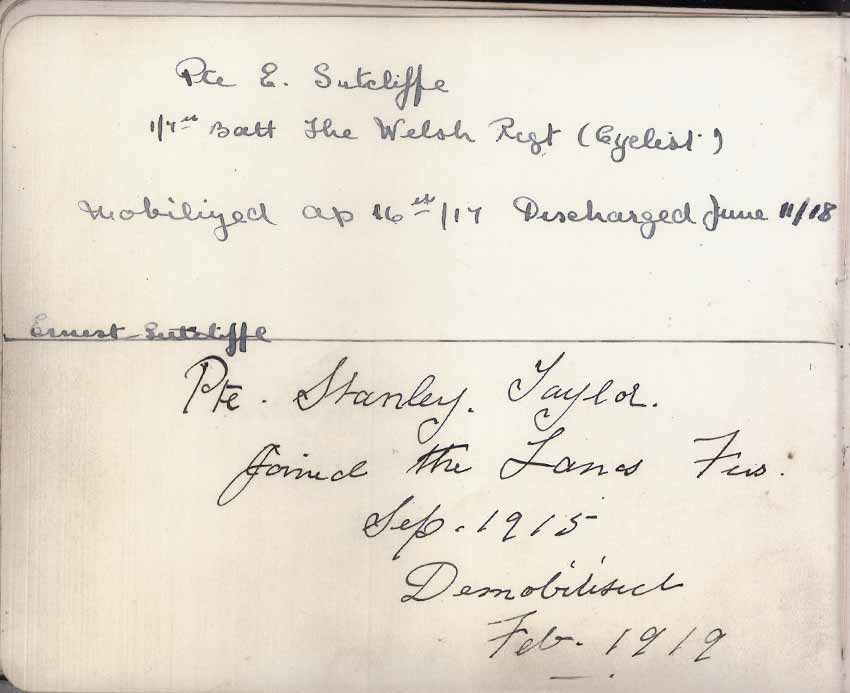 Pte E. Sutcliffe
1/7th Batt The Welsh Regt (Cyclist)
Mobilized Ap 16th/17 Discharged June 11/18
Ernest Sutcliffe
Pte. Stanley. Taylor.
Joined the Lancs Fus.
Sep. 1915
Demobilised
Feb. 1919